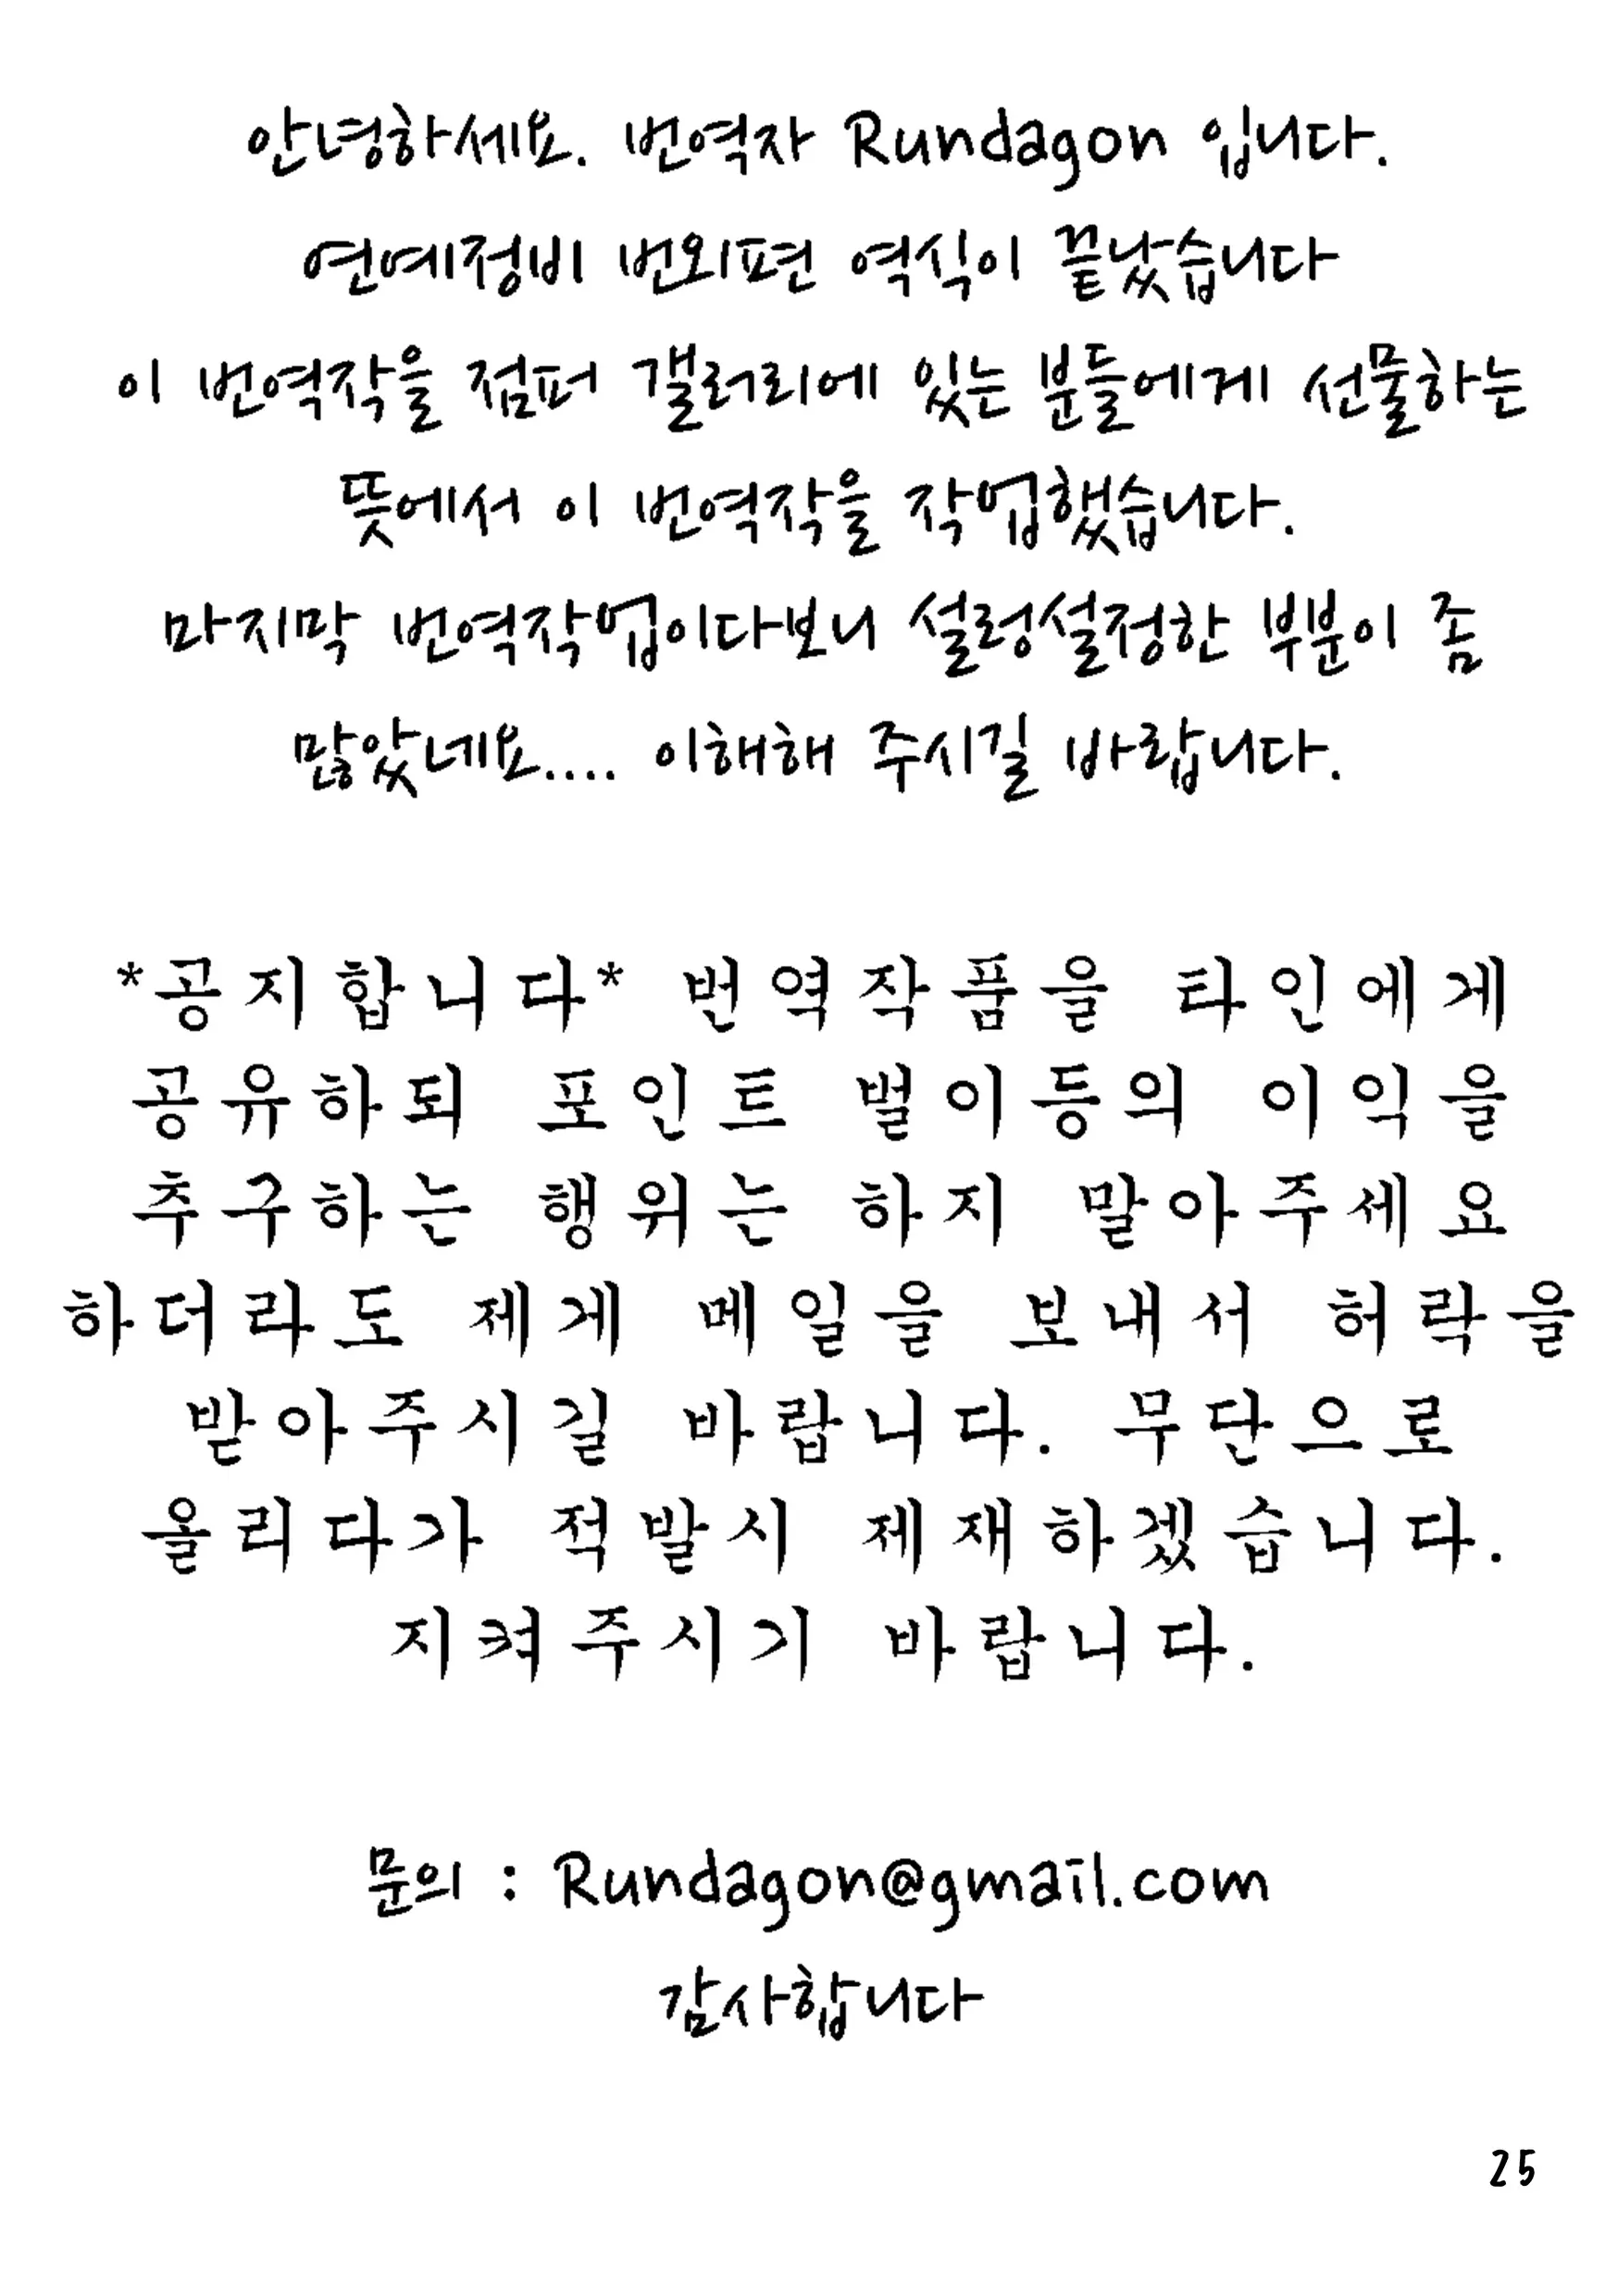 안녕하세요. 번역자 Rundagon 입니다.
연예정비 번외편 역식이 끝났습니다
이 번역작을 점퍼 갤러리에 있는 분들에게 선물하는
뜻에서 이 번역작을 작업했습니다.
마지막 번역작업이다보니 설렁설정한 부분이 좀
많았네요.... 이해해 주시길 바랍니다.
*공지합니다* 번역작품을 타인에게
공유하되 포인트 벌이등의 이익을
추구하는 행위는 하지 말아주세요
하더라도 제게 메일을 보내서 허락을
받아주시길 바랍니다. 무단으로
올리다가 적발시 제재하겠습니다.
지켜주시기 바랍니다.
문의 : Rundagon@gmail.com
감사합니다
25